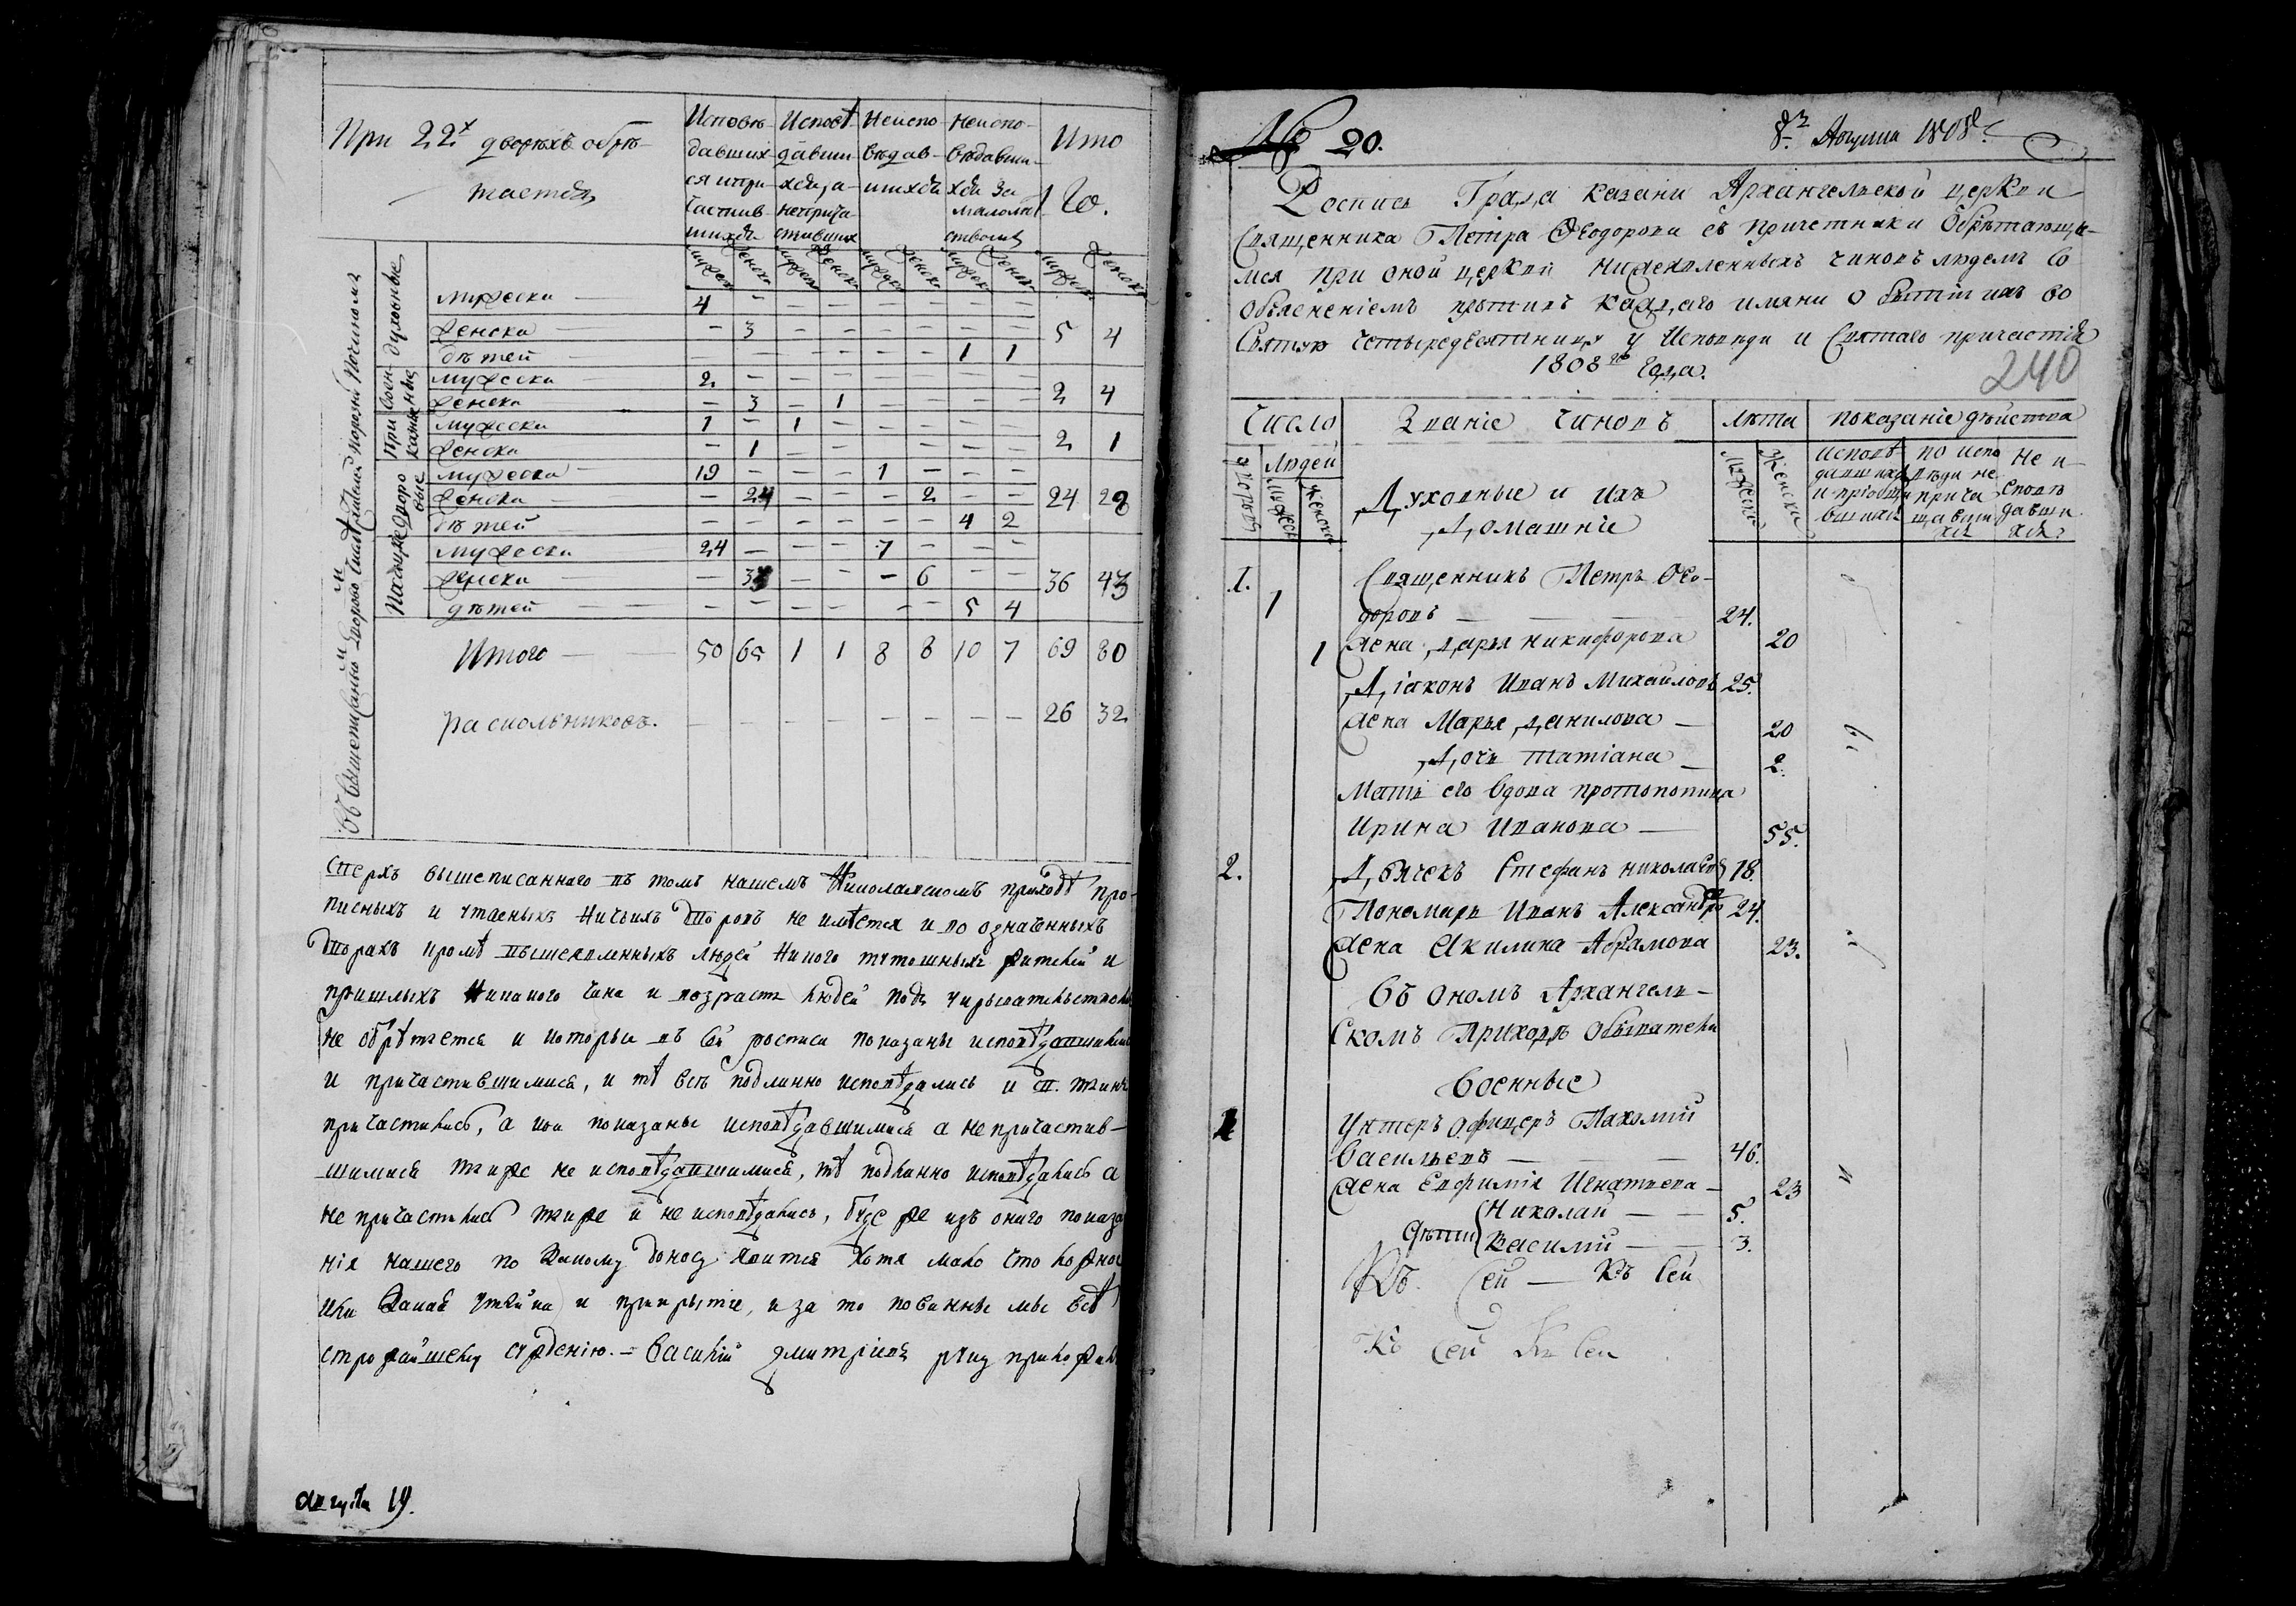 При 22х дворахъ обрѣ-
таетъся
Исповѣ-
давших-
ся и при-
частив-
шихся
Исповѣ-
давши-
хся, а
неприча-
стивших
Неиспо-
вѣдав-
шихся
Неиспо-
вѣдавши-
хся за
малолѣт
ством
Ито
го.
мужеск женск мужеск женск мужеск женск мужеск женск мужеск женск
духовные
мужеска 4 — — — — — — —
женска — 3 — — — — — — 5 4
дѣтей — — — — — — 1 1
воен-
ные
мужеска 2 — — — — — — —
женска — 3 — 1 — — — — 2 4
При
казн
мужеска 1 — 1 — — — — —
женска — 1 — — — — — — 2 1
дворо
вые
мужеска 19 — — — 1 — — —
женска — 24 — — — 2 — — 24 28
дѣтей — — — — — — 4 2
мужеска 24 — — — 7 — — —
женска — 3 — — — 6 — — 36 43
дѣтей — — — — — — 5 4
Итого — 50 65 1 1 8 8 10 7 69 80
раскольниковъ. — — — — — — — — 26 32
сверхъ вышеписаннаго въ томъ нашемъ Николаяскомъ приходѣ про-
писныхъ и утаеныхъ ничьихъ дворовъ не имѣется и во означенныхъ
дворахъ кромѣ вышеявленныхъ людей никого тутошныхъ жителей и
пришлыхъ никакого чина и возраста людей подъ
не обрѣтается и которыи въ сей росписи показаны исповѣдавшимис
и причастившимися, и тѣ всѣ подлинно исповѣдались и
причастились, а кои показаны исповѣдавшимися а не причастив-
шимися также не исповѣдавшимися, тѣ подлинно исповѣдались а
не причастились также и не исповѣдались, буде же изъ оного показа
нія нашего по какому доносу явится хотя мало что ложное
или какая утайка и прикрытіе, и за то повинны мы всѣ
строжайшему сужденію. — Василій Дмитріевъ руку приложилъ
августа 19.
№ 20.
8го Августа 1808го
Роспись Града Казани Архангельской церкви
Священника Петра Ѳеодорова съ причетники обрѣтающи-
мся при оной церкви нижеявленныхъ чиновъ людемъ со
объясненіемъ противъ каждаго имяни о бытіи ихъ во
Святую четыредесятницу у исповѣди и Святаго причастія
1808го года.
240
Число
дворовъ
Людей
мужеск
женска
Званіе чиновъ
Духовные и ихъ
Домашніе
лѣта
мужески
женски
показаніе дѣйства
исповѣ
давшихся
и пріобщи
вшихся
по испо
вѣди не
прича
щавши
хся
Не и-
сповѣ
давши
хся
1. 1 Священникъ Петръ Ѳео-
доровъ — 24.
1 Жена Дарья Никифорова 20
Діаконъ Иванъ Михайловъ 25.
Жена Марья Данилова — 20
Дочь Татіана — 2.
Мать его вдова протопопица
Ирина Иванова — 55.
2. Дьячекъ Стефанъ Николаевъ 18.
Пономарь Иванъ Александро 24.
Жена Акилина Абрамова 23.
Въ ономъ Архангель-
скомъ приходѣ обыватели
Военные
1 Унтеръ офицеръ Пахомій
Васильевъ — 46.
Жена Евфимія Игнатьева — 23
Дѣти Николай — 5.
Василій — 3.
Къ Сей — Къ Сей
Къ Сей Къ Сей